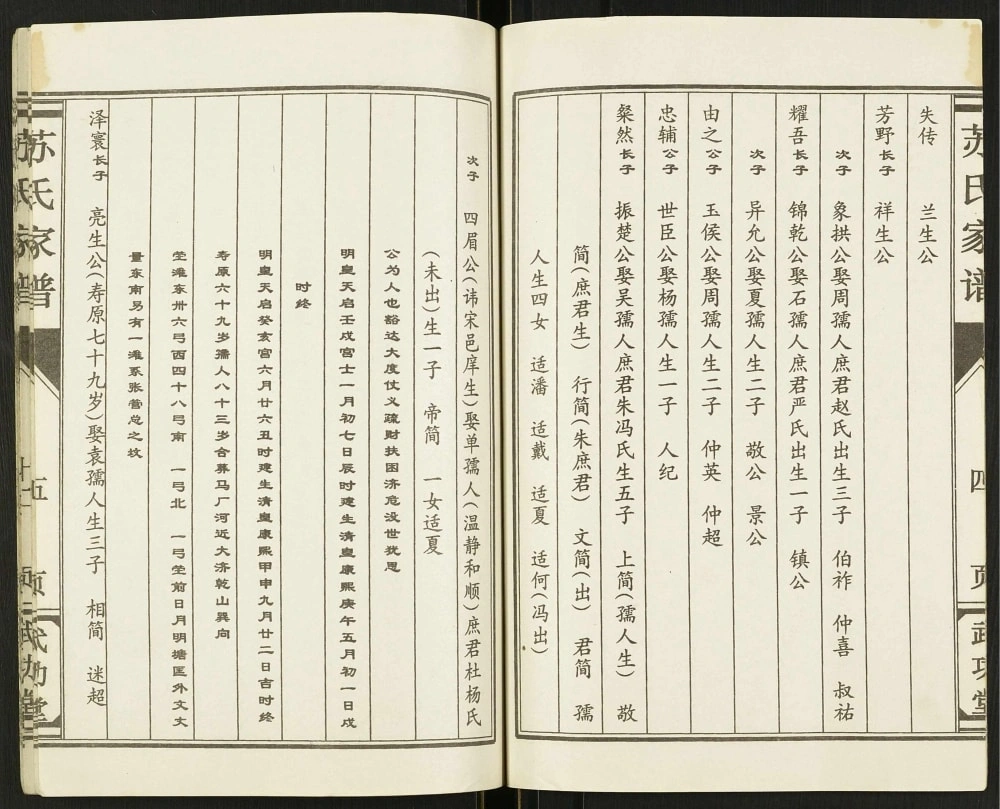 苏氏家谱
四 页
武功堂
失传 兰生公
芳野长子 祥生公
次子 象拱公娶周孺人庶君赵氏出生三子 伯祚 仲喜 叔祐
耀吾长子 锦乾公娶石孺人庶君严氏出生一子 镇公
次子 异允公娶夏孺人生二子 敬公 景公
由之公子 玉侯公娶周孺人生二子 仲英 仲超
忠辅公子 世臣公娶杨孺人生一子 人纪
粲然长子 振楚公娶吴孺人庶君朱冯氏生五子 上简(孺人生) 敬
简(庶君生) 行简(朱庶君) 文简(出) 君简 孺
人生四女 适潘 适戴 适夏 适何(冯出)
次子 四眉公(讳宋邑庠生)娶单孺人(温静和顺)庶君杜杨氏
(未出)生一子 帝简 一女适夏
公为人也豁达大度仗义疏财扶困济危没世犹思
明皇天启壬戌宫士一月初七日辰时建生清皇康熙庚午五月初一日戌
时终
明皇天启癸亥宫六月廿六丑时建生清皇康熙甲申九月廿二日吉时终
寿原六十九岁孺人八十三岁合葬马厂河近大济乾山巽向
茔滩东卅六弓西四十八弓南 一弓北 一弓茔前日月明塘匡外文丈
量东南另有一滩系张营总之坟
泽寰长子 亮生公(寿原七十九岁)娶袁孺人生三子 相简 迷超
苏氏家谱
五 页
武功堂